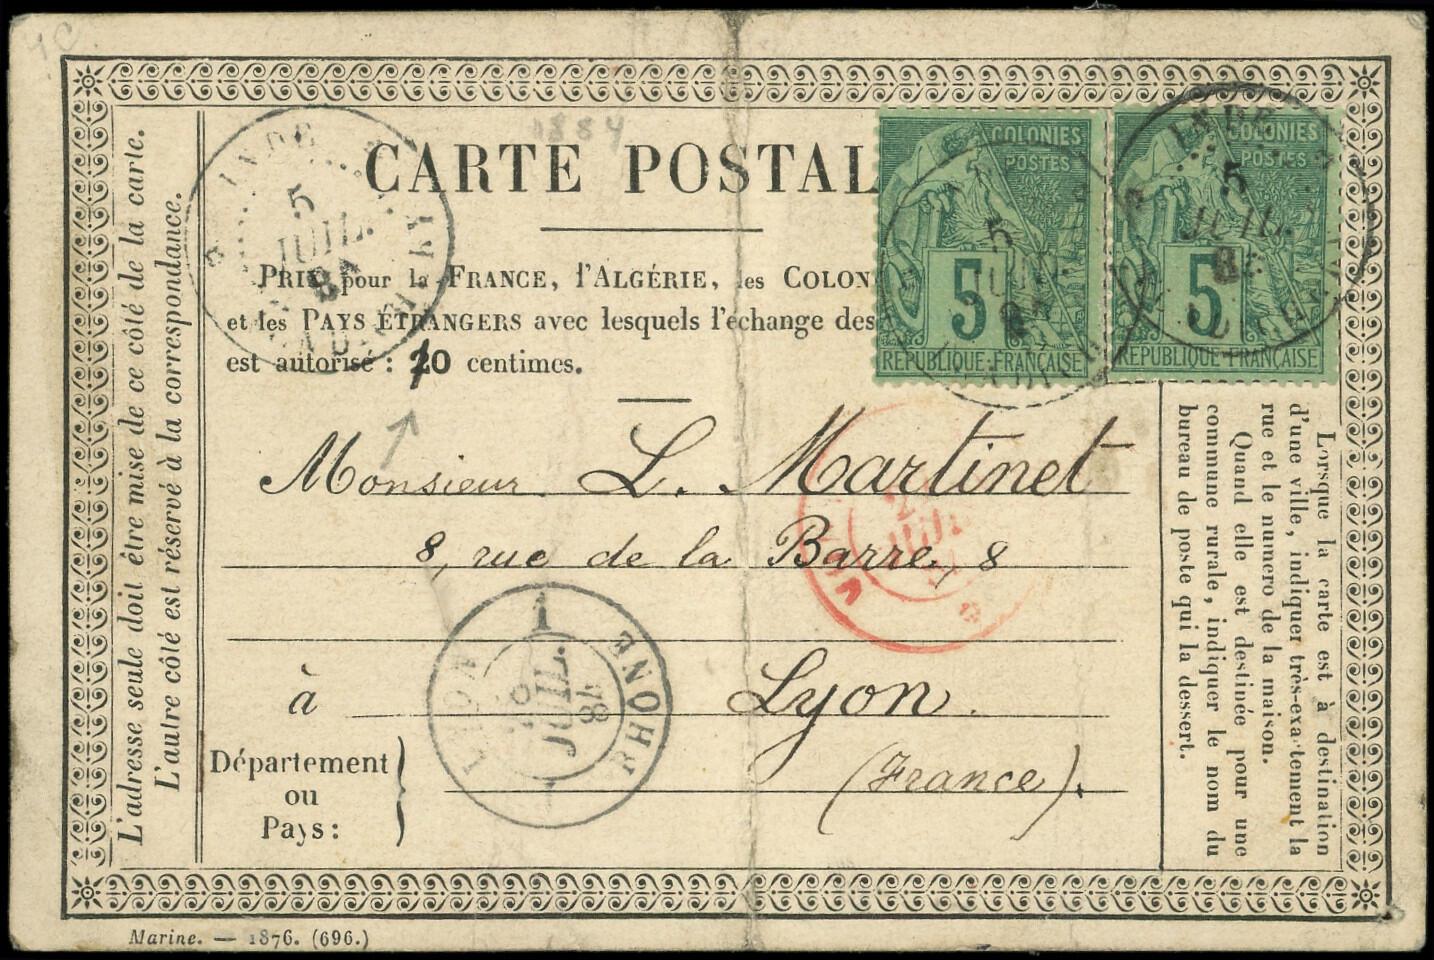 1884
CARTE POSTAL
PRIX pour la FRANCE, l'ALGÉRIE, les COLON
et les PAYS ÉTRANGERS avec lesquels l'échange des
est autorisé : 10 centimes.
COLONIES
POSTES
5
RÉPUBLIQUE FRANÇAISE
COLONIES
POSTES
5
RÉPUBLIQUE FRANÇAISE
INDE
5
JUIL.
84
5
INDE
5
JUIL.
Monsieur L. Martinet
8, rue de la Barre, 8
à Lyon.
(France).
Département
ou
Pays :
JUIL.
LYON
RHONE
1
JUIL.
84
L'adresse seule doit être mise de ce côté de la carte.
L'autre côté est réservé à la correspondance.
Lorsque la carte est à destination
d'une ville, indiquer très-exactement la
rue et le numero de la maison.
Quand elle est destinée pour une
commune rurale, indiquer le nom du
bureau de poste qui la dessert.
Marine. — 1876. (696.)